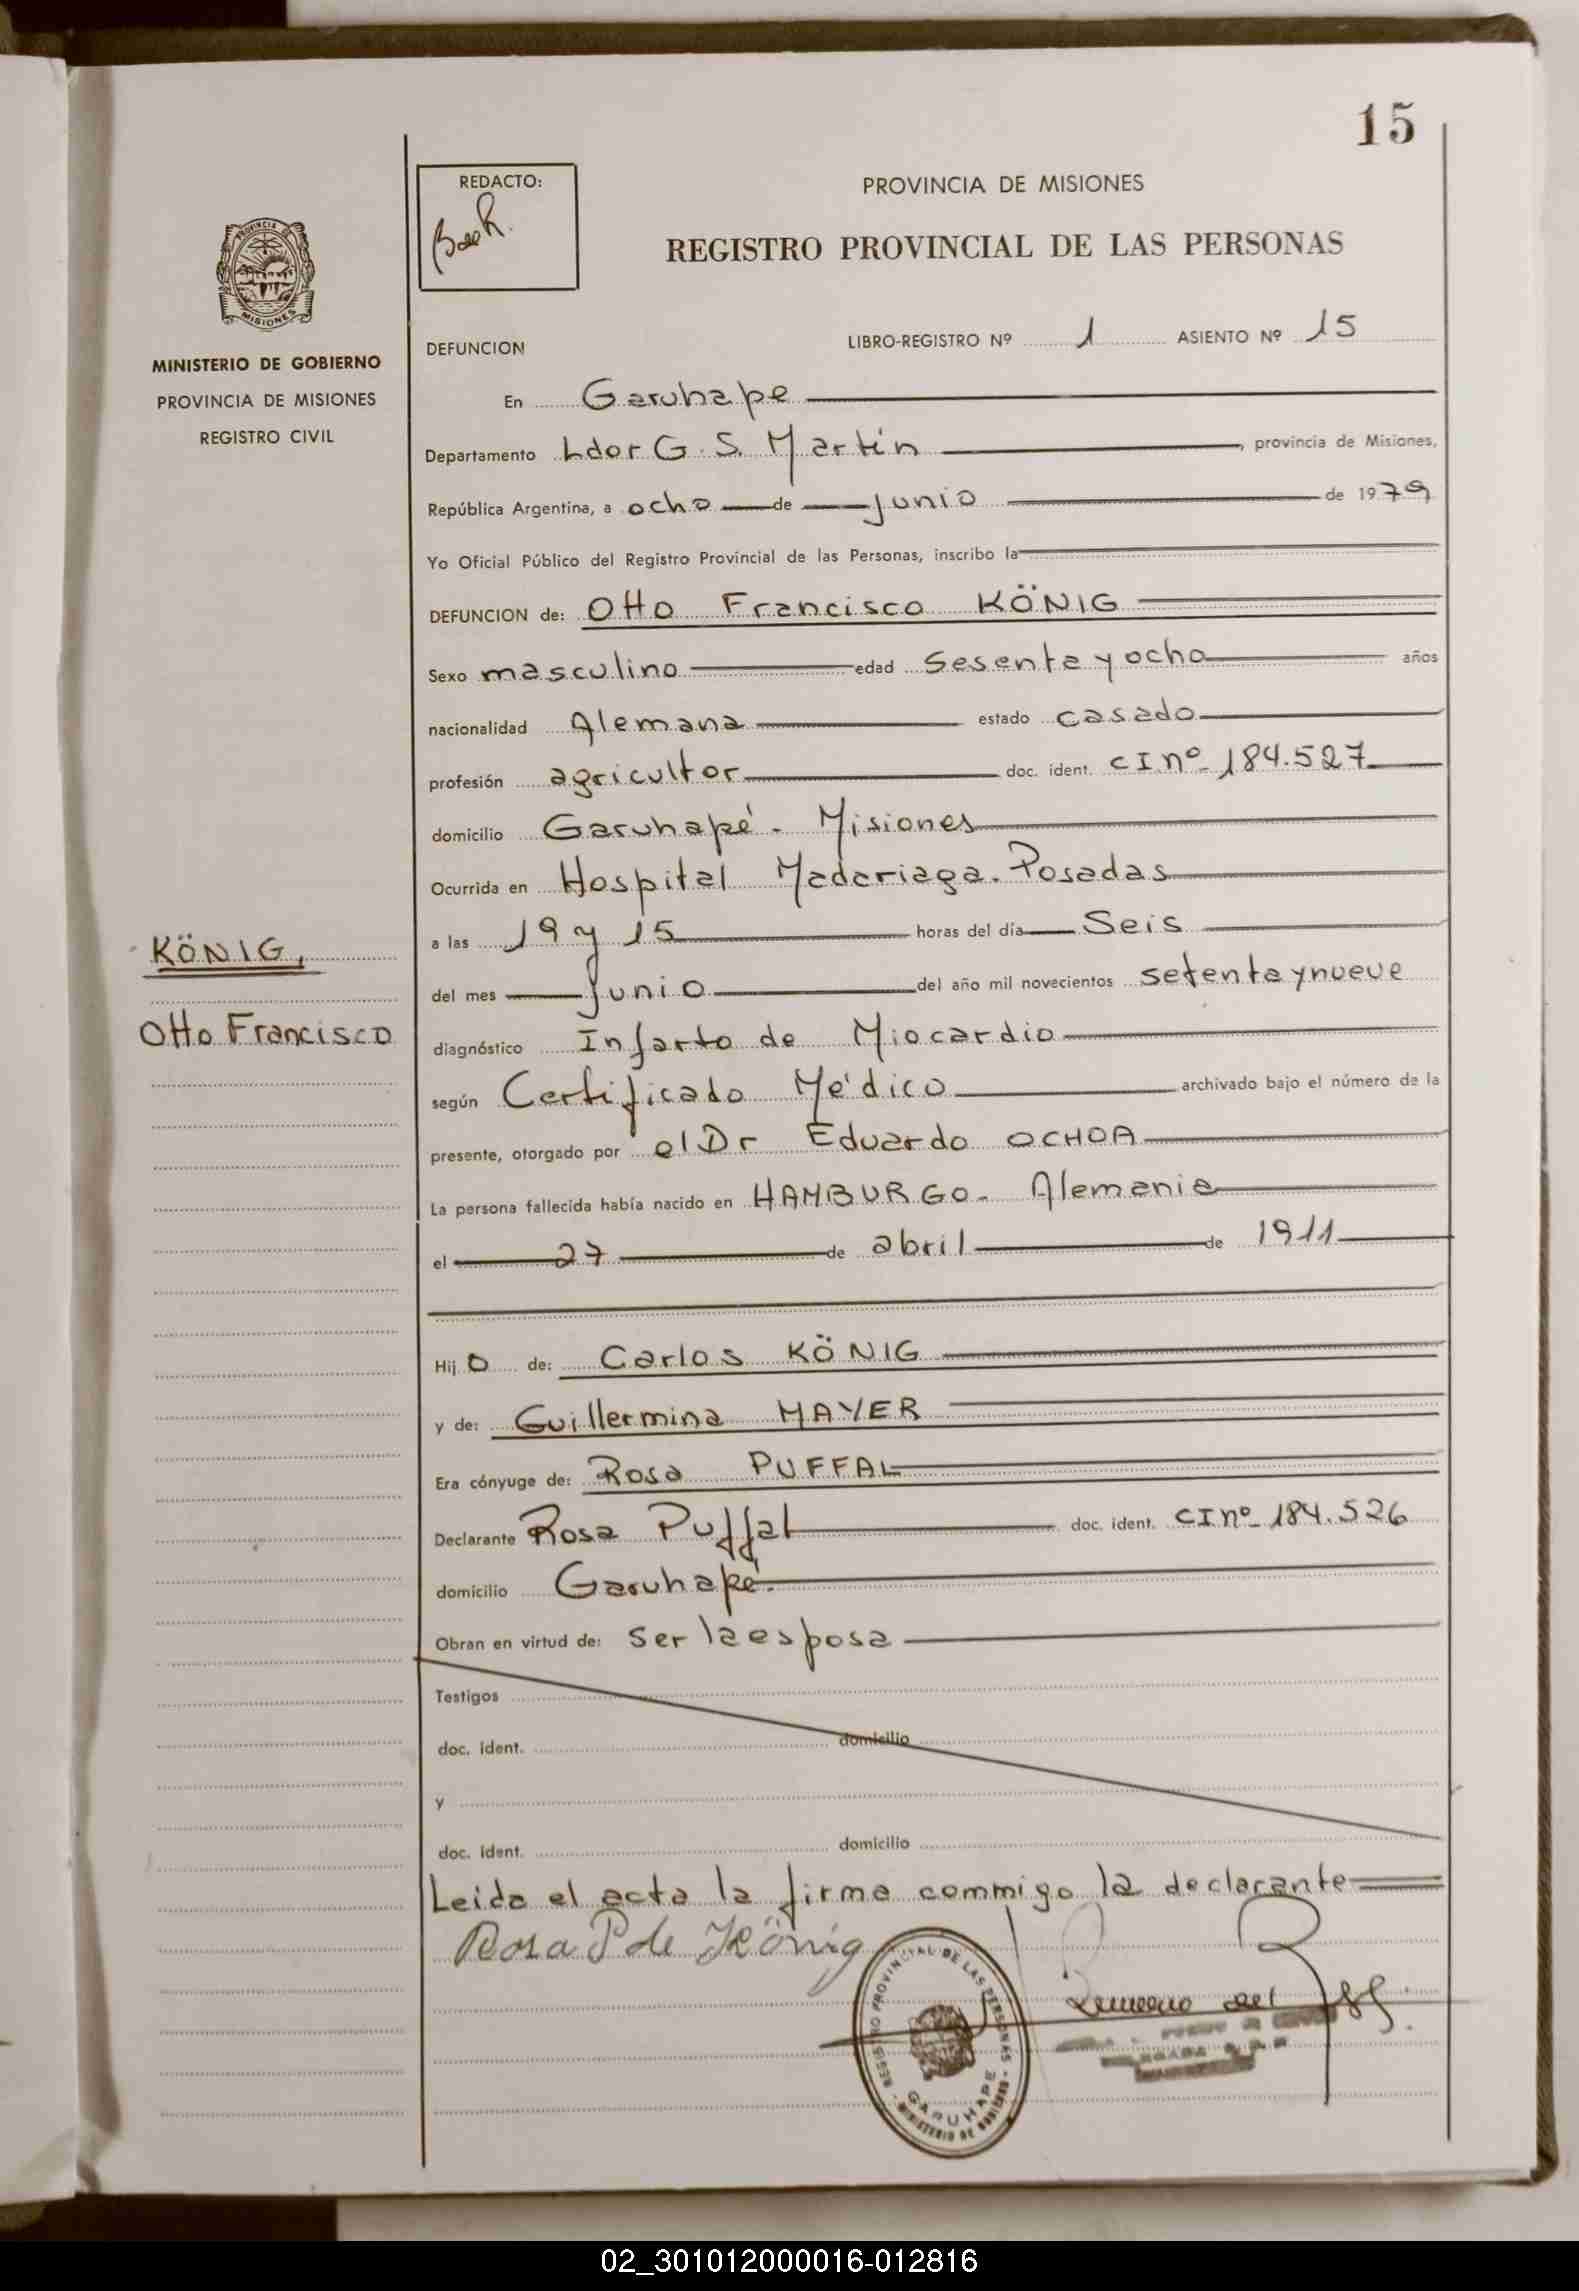 15
REDACTO:
PROVINCIA DE MISIONES
REGISTRO PROVINCIAL DE LAS PERSONAS
PROVINCIA DE
MISIONES
MINISTERIO DE GOBIERNO
PROVINCIA DE MISIONES
REGISTRO CIVIL
DEFUNCION LIBRO-REGISTRO Nº 1 ASIENTO Nº 15
En Garuhape
Departamento Ldor G. S. Martín, provincia de Misiones,
República Argentina, a ocho de junio de 1979
Yo Oficial Público del Registro Provincial de las Personas, inscribo la
DEFUNCION de: Otto Francisco KÖNIG
Sexo masculino edad sesenta y ocho años
nacionalidad Alemana estado casado
profesión agricultor doc. ident. CI nº 184.527
domicilio Garuhapé - Misiones
Ocurrida en Hospital Madariaga. Posadas
a las 19 y 15 horas del día Seis
del mes junio del año mil novecientos setenta y nueve
KÖNIG,
Otto Francisco
diagnóstico Infarto de Miocardio
según Certificado Médico archivado bajo el número de la
presente, otorgado por el Dr Eduardo OCHOA
La persona fallecida había nacido en HAMBURGO - Alemania
el 27 de abril de 1911
Hijo de: Carlos KÖNIG
y de: Guillermina MAYER
Era cónyuge de: Rosa PUFFAL
Declarante Rosa Puffal doc. ident. CI nº 184.526
domicilio Garuhapé.
Obran en virtud de: ser la esposa
Testigos
doc. ident. domicilio
y
doc. ident. domicilio
Leida el acta la firma commigo la declarante
Rosa P de König
REGISTRO PROVINCIAL DE LAS PERSONAS
GARUHAPE
MINISTERIO DE GOBIERNO
02_301012000016-012816